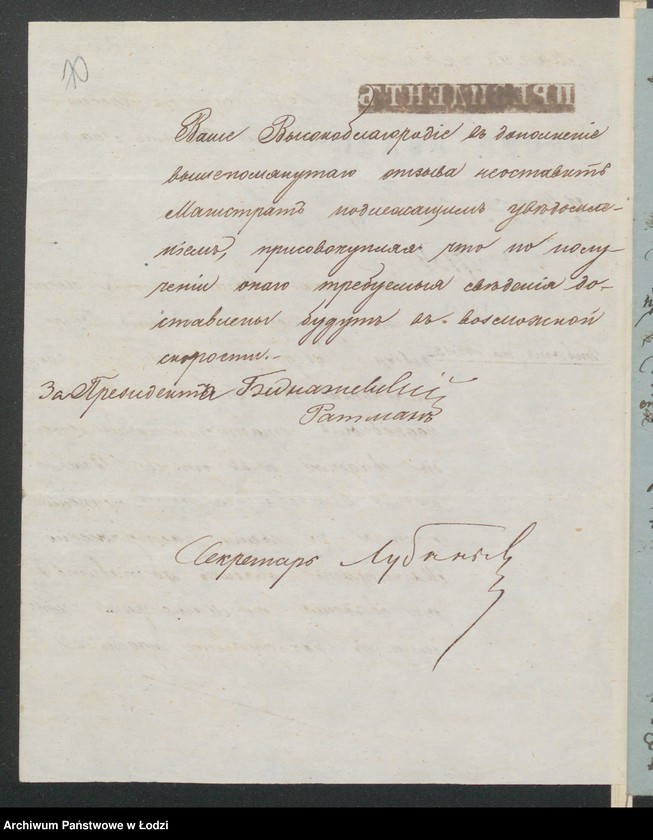 70
ПРЕЗИДЕНТЪ
Ваше Высокоблагородіе въ дополненіе
вышепомянутаго отзыва неоставитъ
Магистратъ подлежащимъ увѣдомле-
ніемъ, присовокупляя что по полу-
ченіи онаго требуемыя свѣденія до-
ставлены будутъ въ возможной
скорости.-
За Президента
Ратманъ
Секретарь
Archiwum Państwowe w Łodzi